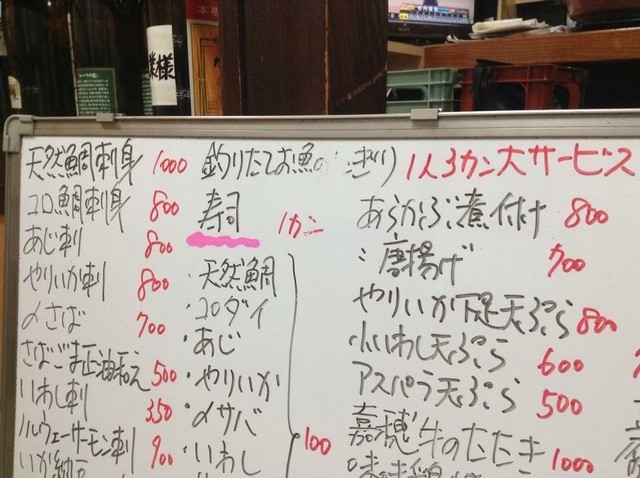 天然鯛刺身 1000
コロ鯛刺身 800
あじ刺 800
やりいか刺 800
〆さば 700
さばごま正油和え 500
いわし刺 350
ノルウェーサーモン刺 900
釣りたてお魚の にぎり 1人3カン大サービス
寿司 1カン
・天然鯛
・コロダイ
・あじ
・やりいか
・〆サバ
・いわし
100
あらかぶ煮付け 800
〃 唐揚げ 700
やりいか下足天ぷら 800
小いわし天ぷら 600
アスパラ天ぷら 500
嘉穂牛のたたき 1000
様